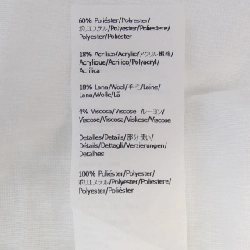 60% Poliéster/Polyester/
ポリエステル/Polyester/Poliestere/
Polyester/Poliéster
18% Acrílico/Acrylic/アクリル繊維/
Acrylique/Acrilico/Polyacryl/
Acrílica
18% Lana/Wool/羊毛/Laine/
Lana/Wolle/Lã
4% Viscosa/Viscose/レーヨン/
Viscose/Viscosa/Viskose/Viscose
Detalles/Details/部分使い/
Détails/Dettagli/Verzierungen/
Detalhes
100% Poliéster/Polyester/
ポリエステル/Polyester/Poliestere/
Polyester/Poliéster